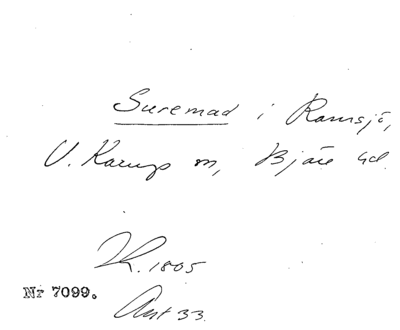 Suremad i Ramsjö,
V. Karup sn, Bjäre hd.
R. 1805
Nr 7099.
Ant 33.